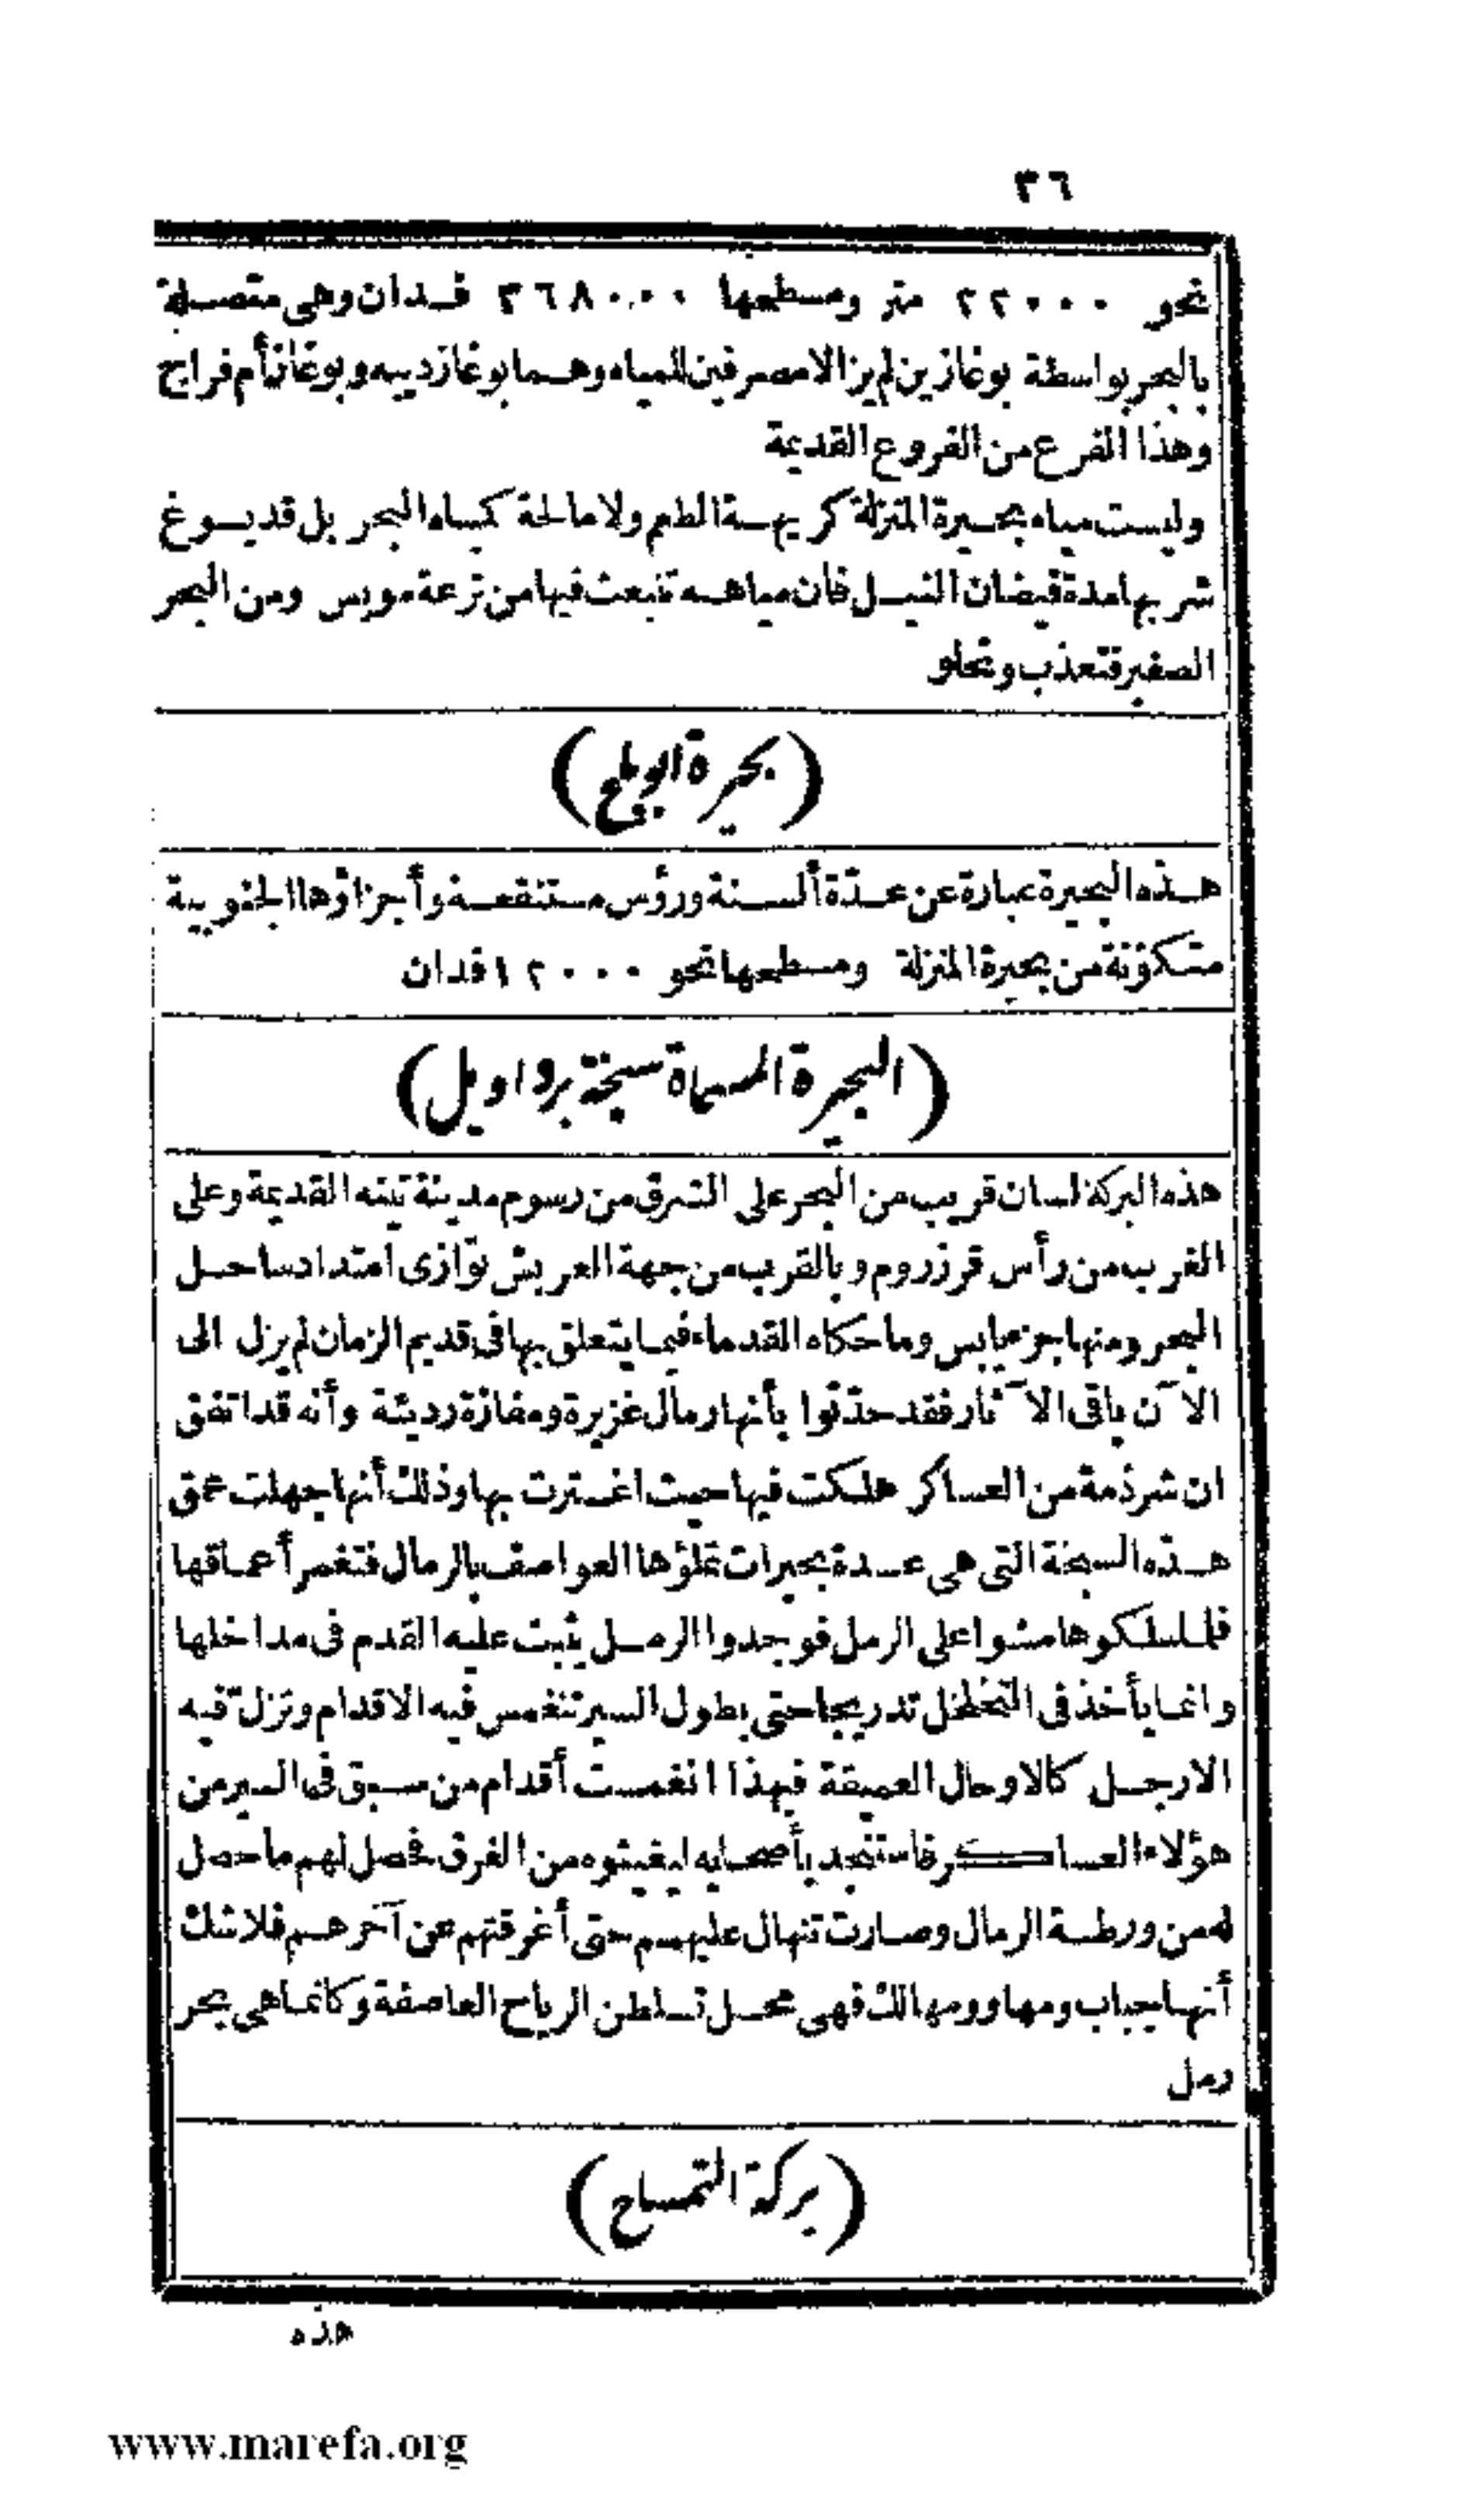 ٣٦
نحو ٢٢٠٠٠ متر ومسطحها ٣٦٨٠٠٠ فدان وهى متصلة
بالبحر بواسطة بوغازين لم يزالا مصرفين للمياه وهما بوغاز ديبه وبوغاز أم فراج
وهذا الفرع من الفروع القديمة
وليست مياه بحيرة المنزلة كريهة الطعم ولا مالحة كمياه البحر بل قد يسوغ
شربها مدة فيضان النيل فان مياهه تنبعث فيها من ترعة مويس ومن البحر
الصغير فتعذب وتحلو
(بحيرة البلاح)
هذه البحيرة عبارة عن عدّة ألسنة ورؤس مستنقعة وأجزاؤها الجنوبية
متكوّنة من بحيرة المنزلة ومسطحها نحو ١٢٠٠٠ فدان
(البحيرة المسماة سبخة بردا ويل)
هذه البركة لسان قريب من البحر على الشرق من رسوم مدينة تينه القديمة وعلى
الغرب من رأس قرزروم وبالقرب من جهة العريش توازى امتداد ساحل
البحر ومنها جزء يابس وما حكاه القدماء فيما يتعلق بها فى قديم الزمان لم يزل الى
الآن باقى الآثار فقد حدّثوا بأنها رمال غزيرة ومفازة رديئة وأنه قد اتفق
ان شرذمة من العساكر هلكت فيها حيث اغترت بها وذلك أنها جهلت عمق
هذه السبخة التى هى عدة بحيرات تملؤها العواصف بالرمال فتغمر أعماقها
فلما سلكوها مشوا على الرمل فوجدوا الرمل يثبت عليه القدم فى مداخلها
وانما يأخذ فى التخلخل تدريجا حتى بطول السير تنغمس فيه الاقدام وتزل فيه
الارجل كالاوحال العميقة فبهذا انغمست أقدام من سبق فى السير من
هؤلاء العساكر فاستنجد بأصحابه ليغيثوه من الغرق فحصل لهم ما حصل
له من ورطة الرمال وصارت تنهال عليهم حتى أغرقتهم عن آخرهم فلا شك
أنها يباب ومهاوومهالك فهى محل تسلطن الرياح العاصفة وكانما هى بحر
رمل
(بركة التمساح)
هذه
www.marefa.org